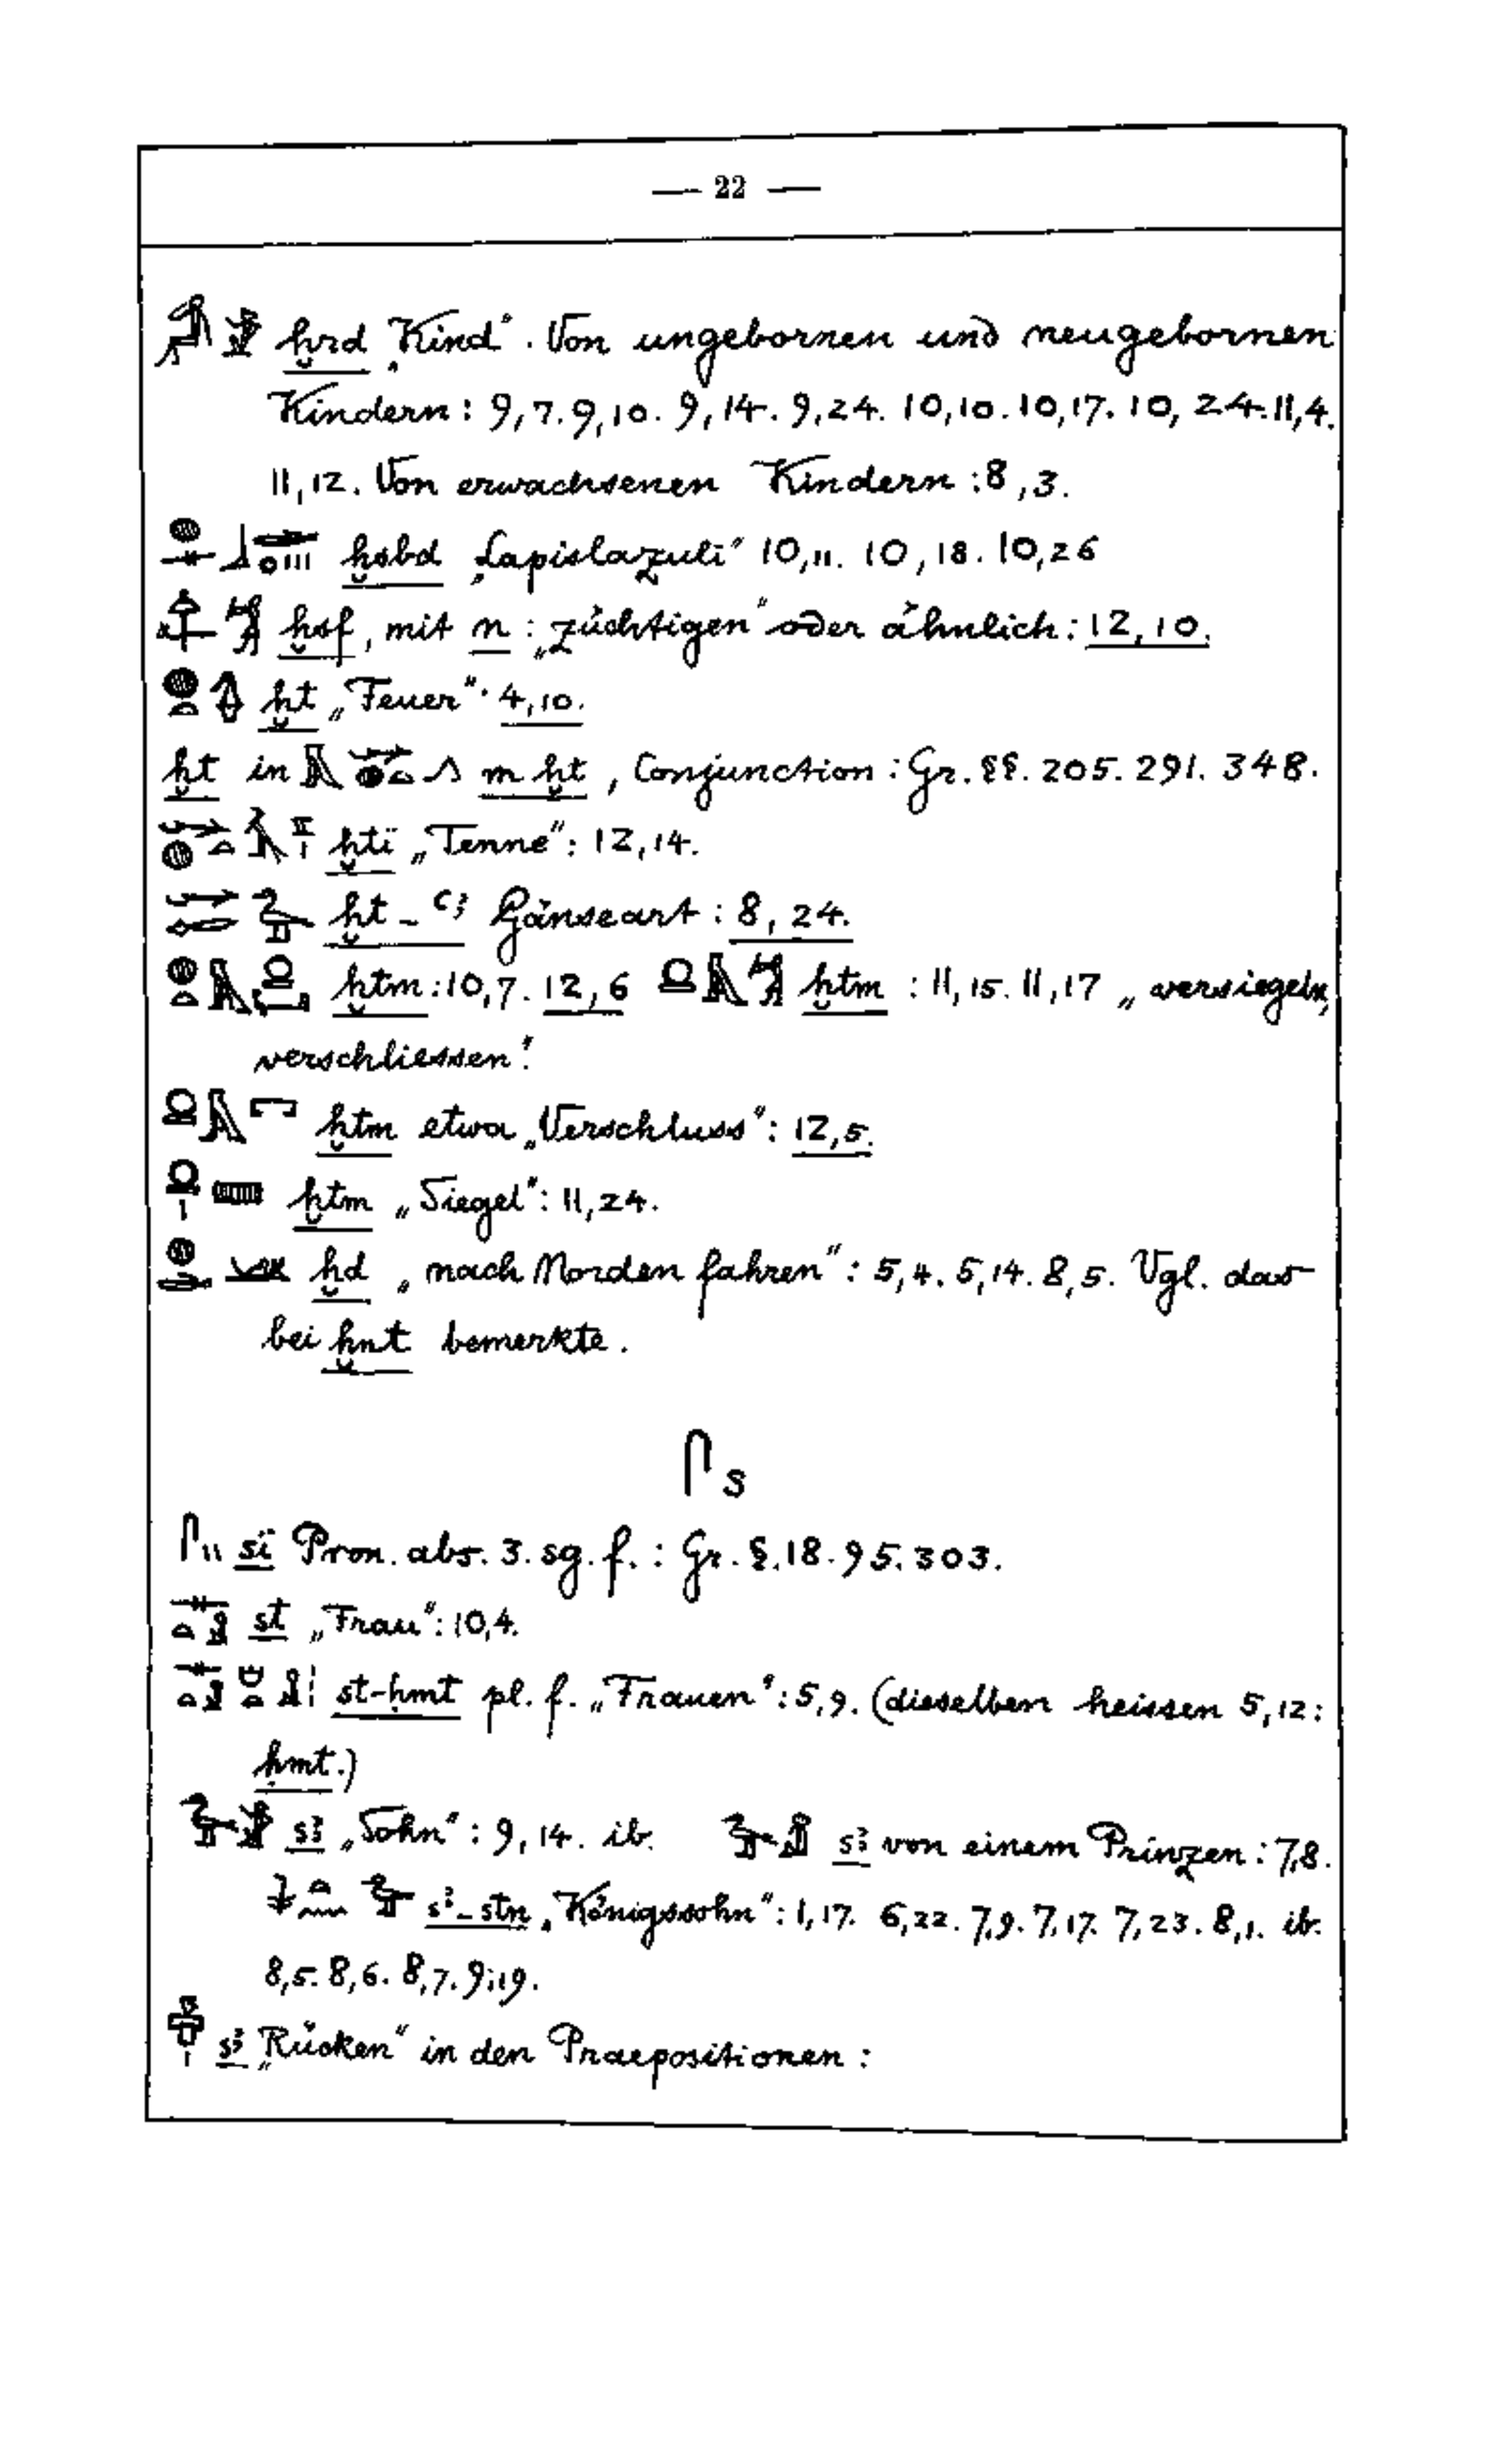 — 22 —
ḫrd „Kind“. Von ungebornen und neugebornen
Kindern: 9,7. 9,10. 9,14. 9,24. 10,10. 10,17. 10,24. 11,4.
11,12. Von erwachsenen Kindern: 8,3.
ḫsbd „Lapislazuli“ 10,11. 10,18. 10,26
ḫsf, mit n: „züchtigen“ oder ähnlich: 12,10.
ḫt „Feuer“. 4,10.
ḫt in m ḫt, Conjunction: Gr. §§. 205. 291. 348.
ḫtï „Tenne“: 12,14.
ḫt-ꜥꜣ Gänseart: 8,24.
ḫtm: 10,7. 12,6 ḫtm: 11,15. 11,17 „versiegeln,
verschliessen“.
ḫtm etwa „Verschluss“: 12,5.
ḫtm „Siegel“: 11,24.
ḫd „nach Norden fahren“: 5,4. 5,14. 8,5. Vgl. das
bei ḫnt bemerkte.
𓋴 s
𓋴𓏭 sï Pron. abs. 3. sg. f.: Gr. §. 18. 95. 303.
st „Frau“: 10,4.
st-ḥmt pl. f. „Frauen“: 5,9. (dieselben heissen 5,12:
ḥmt.)
sꜣ „Sohn“: 9,14. ib. sꜣ von einem Prinzen: 7,8.
sꜣ-stn „Königssohn“: 1,17. 6,22. 7,9. 7,17. 7,23. 8,1. ib.
8,5. 8,6. 8,7. 9,19.
sꜣ „Rücken“ in den Praepositionen: